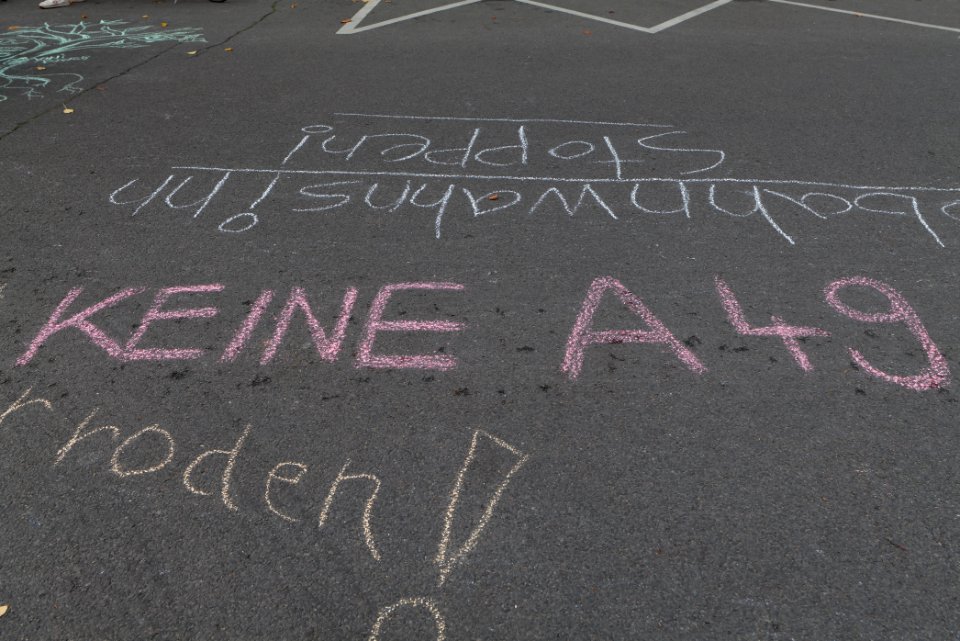 obahnwahnsinn
Stoppen!
KEINE A49
roden!